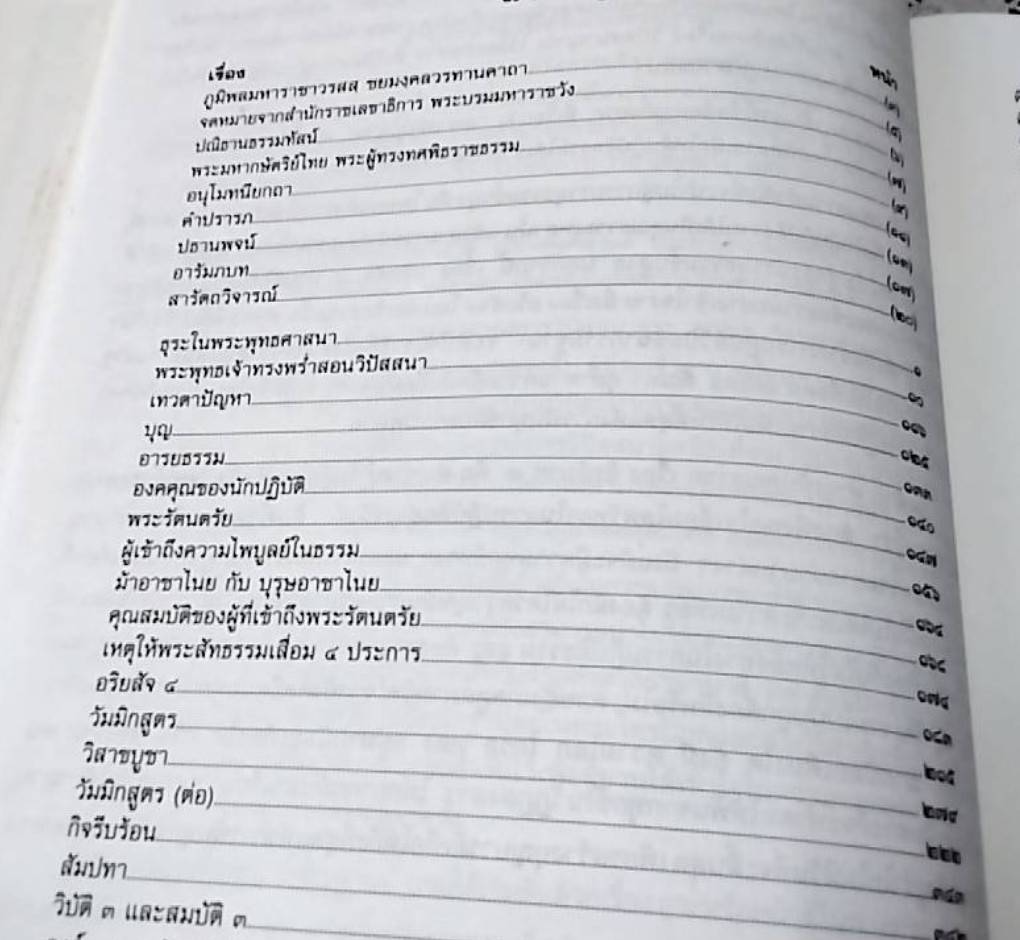 เรื่อง หน้า
ภูมิพลมหาราชาวรสฺส ชยมงฺคลวรทานคาถา (๓)
จดหมายจากสำนักราชเลขาธิการ พระบรมมหาราชวัง (๕)
ปณิธานธรรมทัสน์ (๖)
พระมหากษัตริย์ไทย พระผู้ทรงทศพิธราชธรรม (๗)
อนุโมทนียกถา (๙)
คำปรารภ (๑๑)
ปธานพจน์ (๑๓)
อารัมภบท (๑๗)
สารัตถวิจารณ์ (๒๐)
ธุระในพระพุทธศาสนา ๑
พระพุทธเจ้าทรงพร่ำสอนวิปัสสนา ๑๐
เทวดาปัญหา ๑๑๖
บุญ ๑๒๕
อารยธรรม ๑๓๓
องคคุณของนักปฏิบัติ ๑๔๐
พระรัตนตรัย ๑๔๗
ผู้เข้าถึงความไพบูลย์ในธรรม ๑๕๖
ม้าอาชาไนย กับ บุรุษอาชาไนย ๑๖๔
คุณสมบัติของผู้ที่เข้าถึงพระรัตนตรัย ๑๖๘
เหตุให้พระสัทธรรมเสื่อม ๔ ประการ ๑๗๔
อริยสัจ ๔ ๑๘๓
วัมมิกสูตร ๒๑๕
วิสาขบูชา ๒๗๙
วัมมิกสูตร (ต่อ) ๒๒๒
กิจรีบร้อน ๓๔๑
สัมปทา
วิบัติ ๓ และสมบัติ ๓